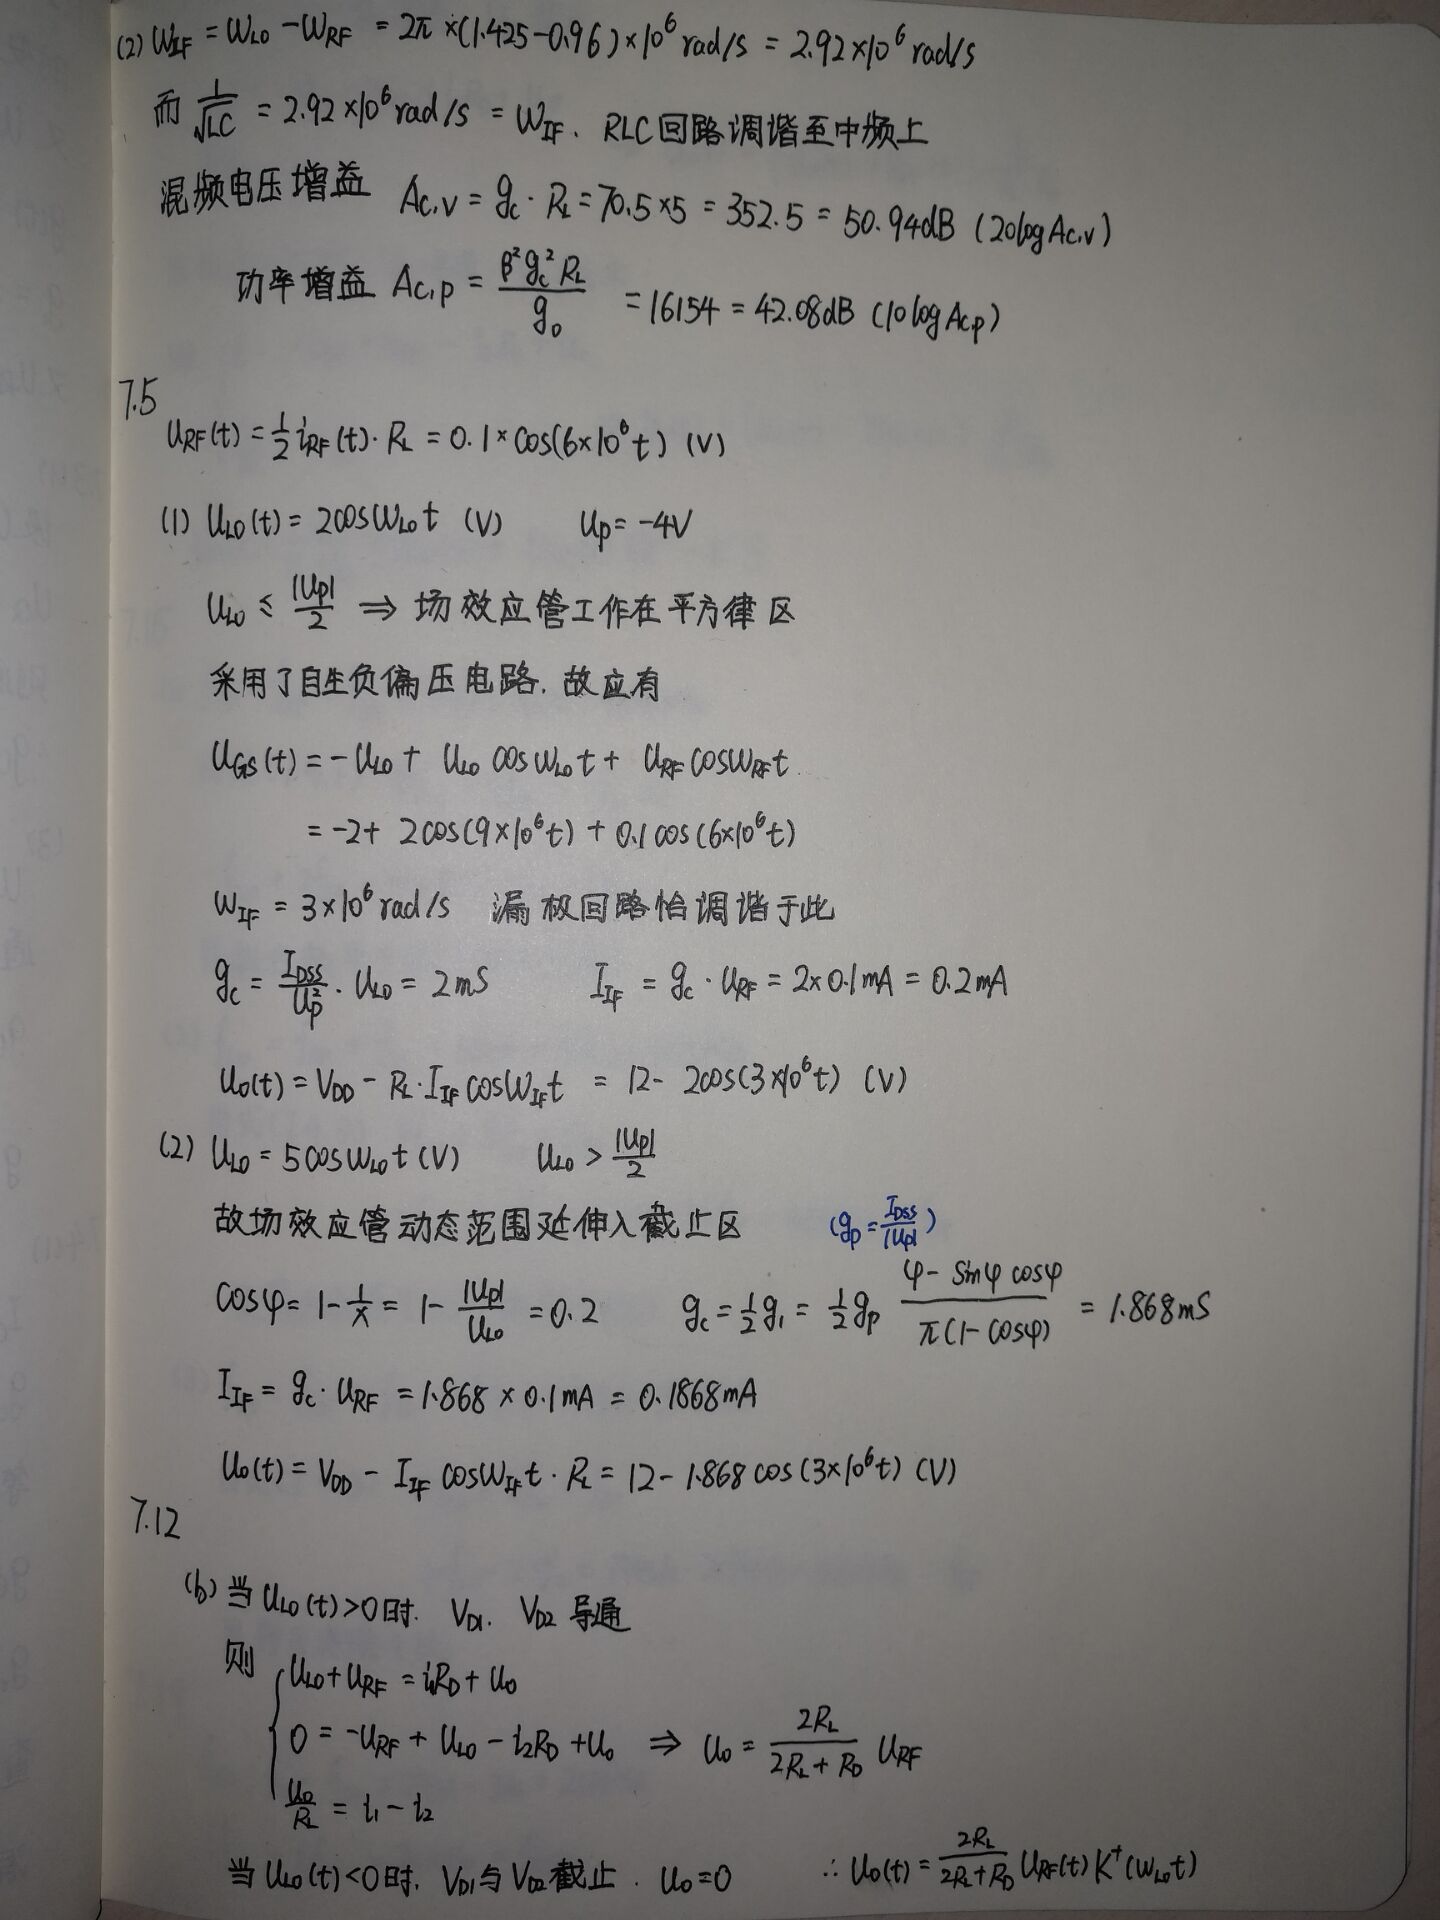 (2) ω_IF = ω_LO − ω_RF = 2π×(1.425−0.96)×10⁶ rad/s = 2.92×10⁶ rad/s
而 1/√LC = 2.92×10⁶ rad/s = ω_IF. RLC回路调谐至中频上
混频电压增益 A_C,V = g_c · R_L = 70.5×5 = 352.5 = 50.94dB (20logA_C,V)
功率增益 A_C,P = β²g_c²R_L / g_0 = 16154 = 42.08dB (10logA_CP)
7.5
U_RF(t) = 1/2 i_RF(t) · R_L = 0.1×cos(6×10⁶t) (V)
(1) U_LO(t) = 2cosω_LOt (V) U_P = −4V
U_LO ≤ |U_P|/2 ⇒ 场效应管工作在平方律区
采用了自生负偏压电路. 故应有
U_GS(t) = −U_LO + U_LO cosω_LOt + U_RF cosω_RFt
= −2 + 2cos(9×10⁶t) + 0.1cos(6×10⁶t)
ω_IF = 3×10⁶ rad/s 漏极回路恰调谐于此
g_c = I_DSS/U_P² · U_LO = 2mS I_IF = g_c · U_RF = 2×0.1mA = 0.2mA
U_o(t) = V_DD − R_L · I_IF cosω_IFt = 12 − 2cos(3×10⁶t) (V)
(2) U_LO = 5cosω_LOt (V) U_LO > |U_P|/2
故场效应管动态范围延伸入截止区 (g_p = I_DSS/|U_P|)
cosφ = 1 − 1/x = 1 − |U_P|/U_LO = 0.2 g_c = 1/2 g_1 = 1/2 g_p (φ − sinφ cosφ)/(π(1 − cosφ)) = 1.868mS
I_IF = g_c · U_RF = 1.868 × 0.1mA = 0.1868mA
U_o(t) = V_DD − I_IF cosω_IFt · R_L = 12 − 1.868cos(3×10⁶t) (V)
7.12
(b) 当U_LO(t)>0时. V_D1. V_D2 导通
则 { U_LO + U_RF = i_1R_D + U_o
0 = −U_RF + U_LO − i_2R_D + U_o ⇒ U_o = 2R_L/(2R_L + R_D) U_RF
U_o/R_L = i_1 − i_2
当U_LO(t)<0时. V_D1与V_D2截止. U_o = 0 ∴ U_o(t) = 2R_L/(2R_L+R_D) U_RF(t) K⁺(ω_LOt)